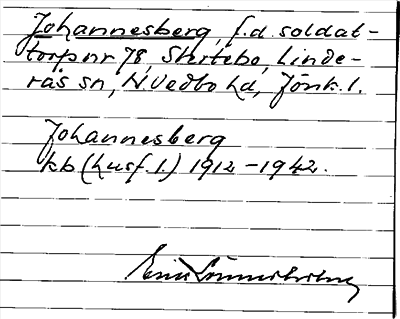 Johannesberg, f.d. soldat-
torp nr 78, Stertebo, Linde-
räs sn, N. Vedbo hd, Jönk. l.
Johannesberg
kb (husf. l.) 1912-1942.